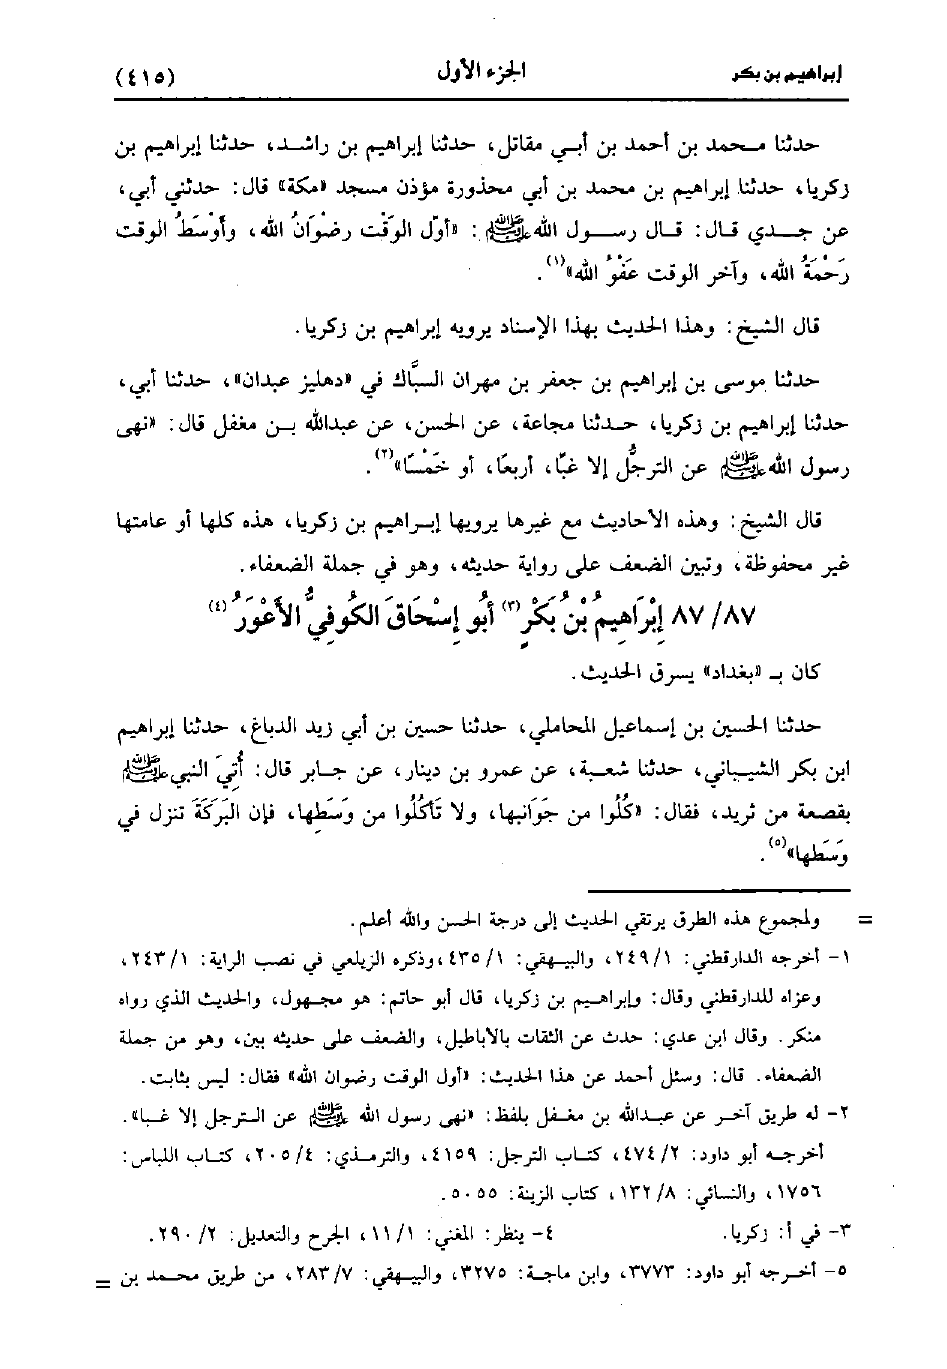 إبراهيم بن بكر الجزء الأول (٤١٥)
حدثنا محمد بن أحمد بن أبي مقاتل، حدثنا إبراهيم بن راشد، حدثنا إبراهيم بن
زكريا، حدثنا إبراهيم بن محمد بن أبي محذورة مؤذن مسجد «مكة» قال: حدثني أبي،
عن جدي قال: قال رسول الله ﷺ: «أول الوَقْت رضْوَانُ الله، وأوْسَطُ الوقت
رَحْمَةُ الله، وآخر الوقت عَفْوُ الله»(١).
قال الشيخ: وهذا الحديث بهذا الإسناد يرويه إبراهيم بن زكريا.
حدثنا موسى بن إبراهيم بن جعفر بن مهران السبَّاك في «دهليز عبدان»، حدثنا أبي،
حدثنا إبراهيم بن زكريا، حدثنا مجاعة، عن الحسن، عن عبدالله بن مغفل قال: «نهى
رسول الله ﷺ عن الترجُّل إلا غبًّا، أربعًا، أو خَمْسًا»(٢).
قال الشيخ: وهذه الأحاديث مع غيرها يرويها إبراهيم بن زكريا، هذه كلها أو عامتها
غير محفوظة، وتبين الضعف على رواية حديثه، وهو في جملة الضعفاء.
٨٧/ ٨٧ إِبْرَاهِيمُ بْنُ بَكْرٍ(٣) أَبُو إِسْحَاقَ الكُوفِيُّ الأَعْوَرُ(٤)
كان بـ «بغداد» يسرق الحديث.
حدثنا الحسين بن إسماعيل المحاملي، حدثنا حسين بن أبي زيد الدباغ، حدثنا إبراهيم
ابن بكر الشيباني، حدثنا شعبة، عن عمرو بن دينار، عن جابر قال: أُتِيَ النبي ﷺ
بقصعة من ثريد، فقال: «كُلُوا من جَوَانبها، ولا تَأكُلُوا من وَسَطِها، فإن البَرَكَةَ تنزل في
وَسَطها»(٥).
= ولمجموع هذه الطرق يرتقي الحديث إلى درجة الحسن والله أعلم.
١- أخرجه الدارقطني: ٢٤٩/١، والبيهقي: ٤٣٥/١، وذكره الزيلعي في نصب الراية: ٢٤٣/١،
وعزاه للدارقطني وقال: وإبراهيم بن زكريا، قال أبو حاتم: هو مجهول، والحديث الذي رواه
منكر. وقال ابن عدي: حدث عن الثقات بالأباطيل، والضعف على حديثه بين، وهو من جملة
الضعفاء. قال: وسئل أحمد عن هذا الحديث: «أول الوقت رضوان الله» فقال: ليس بثابت.
٢- له طريق آخر عن عبدالله بن مغفل بلفظ: «نهى رسول الله ﷺ عن الترجل إلا غبا».
أخرجه أبو داود: ٤٧٤/٢، كتاب الترجل: ٤١٥٩، والترمذي: ٢٠٥/٤، كتاب اللباس:
١٧٥٦، والنسائي: ١٣٢/٨، كتاب الزينة: ٥٠٥٥.
٣- في أ: زكريا. ٤- ينظر: المغني: ١١/١، الجرح والتعديل: ٢٩٠/٢.
٥- أخرجه أبو داود: ٣٧٧٣، وابن ماجة: ٣٢٧٥، والبيهقي: ٢٨٣/٧، من طريق محمد بن =